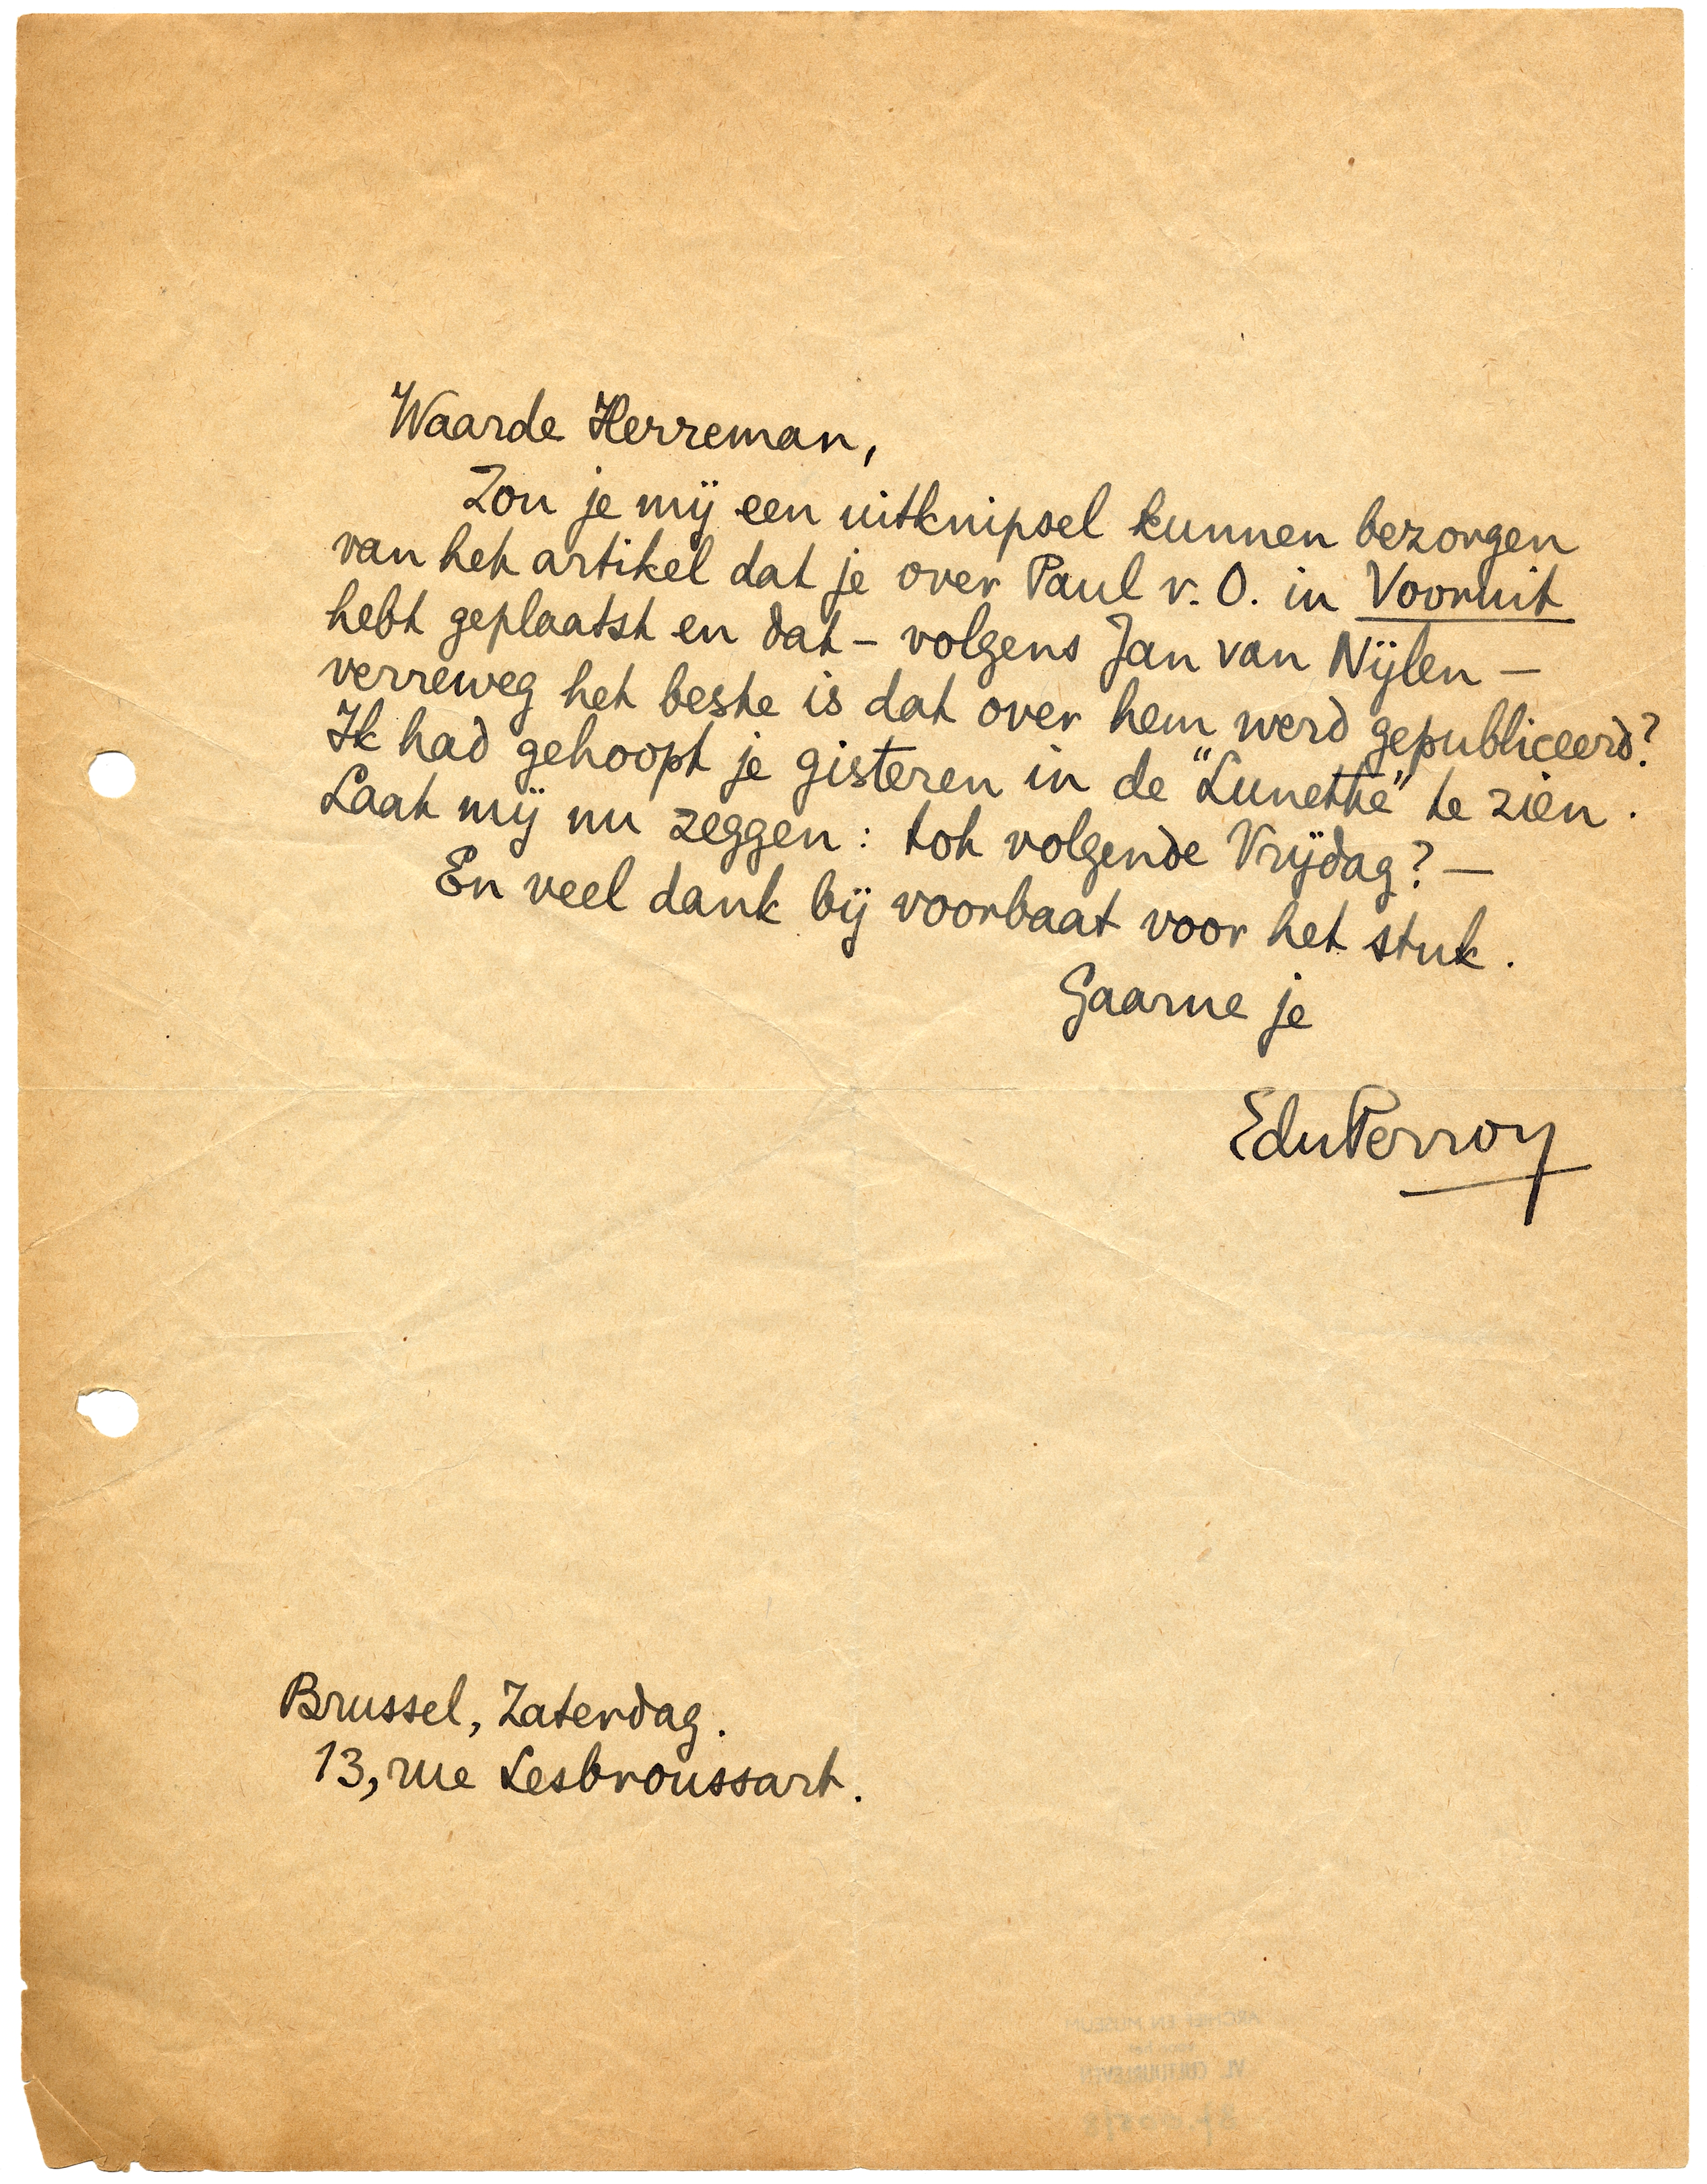 Waarde Herreman,
Zou je mij een uitknipsel kunnen bezorgen
van het artikel dat je over Paul v. O. in Vooruit
hebt geplaatst en dat – volgens Jan van Nijlen –
verreweg het beste is dat over hem werd gepubliceerd?
Ik had gehoopt je gisteren in de "Lunette" te zien.
Laat mij nu zeggen: tot volgende Vrijdag? –
En veel dank bij voorbaat voor het stuk.
Gaarne je
EduPerron
Brussel, Zaterdag.
13, rue Lesbroussart.
ARCHIEF EN MUSEUM
VL. CULTUURLEVEN